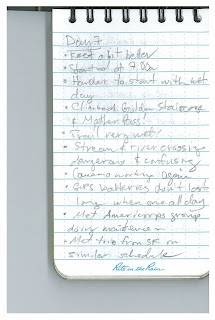 Day 7
• Feet a bit better
• Started at 9:00a
• Harder to start with wet
day
• Climbed Golden Staircase
& Mather Pass!
• Trail very wet!
• Stream & river crossing
dangerous & confusing
• Camera working again
• GPS batteries don't last
long when on all day
• Met Americorps group
doing maintenence
• Met trio from SR on
similar schedule
Rite in the Rain